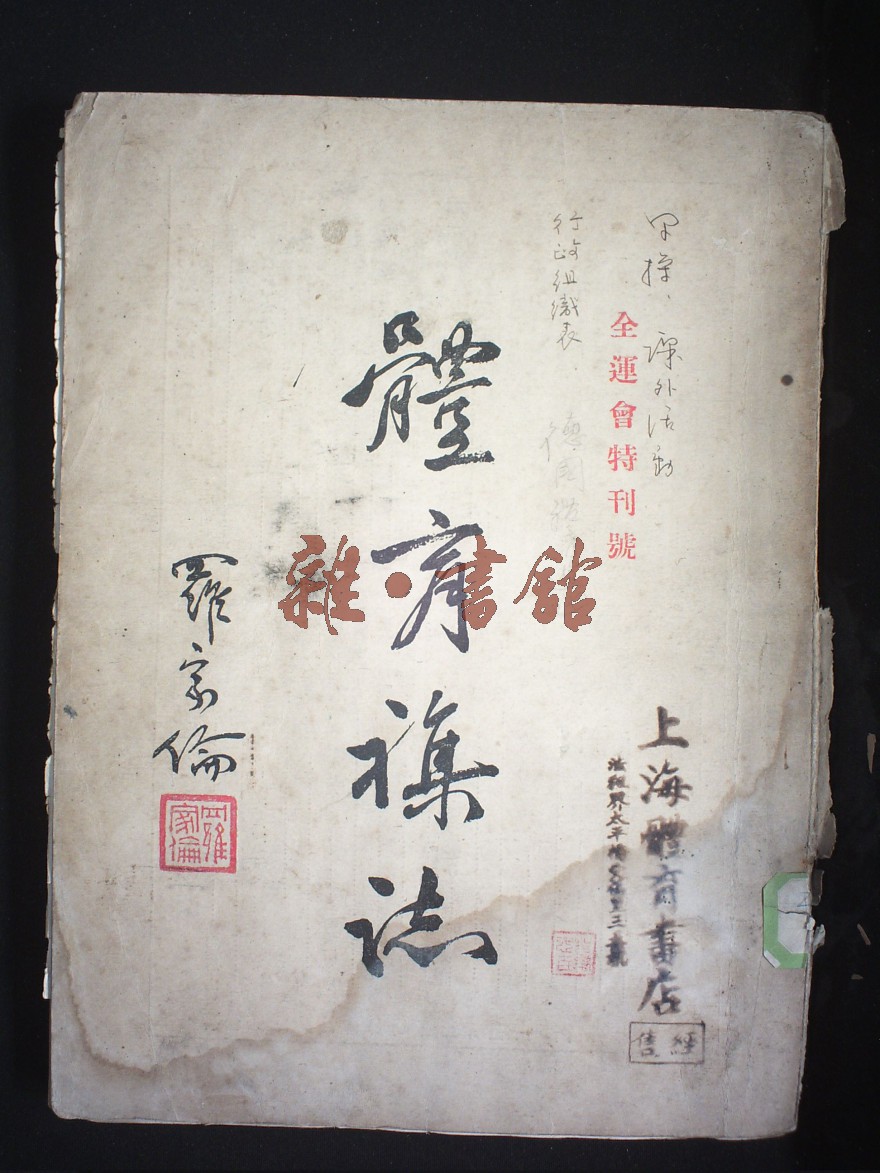 早操、課外活動
全運會特刊號
行政組織表.
德國
體育襍誌
羅家倫
羅家倫
雜·書館
上海體育書店
法租界太平橋
經售